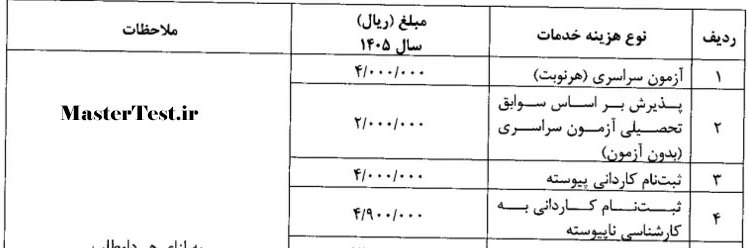 ردیف نوع هزینه خدمات مبلغ (ریال) ملاحظات
سال ۱۴۰۵
۱ آزمون سراسری (هرنوبت) ۴/۰۰۰/۰۰۰
MasterTest.ir
۲ پذیرش بر اساس سوابق
تحصیلی آزمون سراسری ۲/۰۰۰/۰۰۰
(بدون آزمون)
۳ ثبت‌نام کاردانی پیوسته ۴/۰۰۰/۰۰۰
۴ ثبت‌نام کاردانی به ۴/۹۰۰/۰۰۰
کارشناسی ناپیوسته
به ازای هر داوطلب